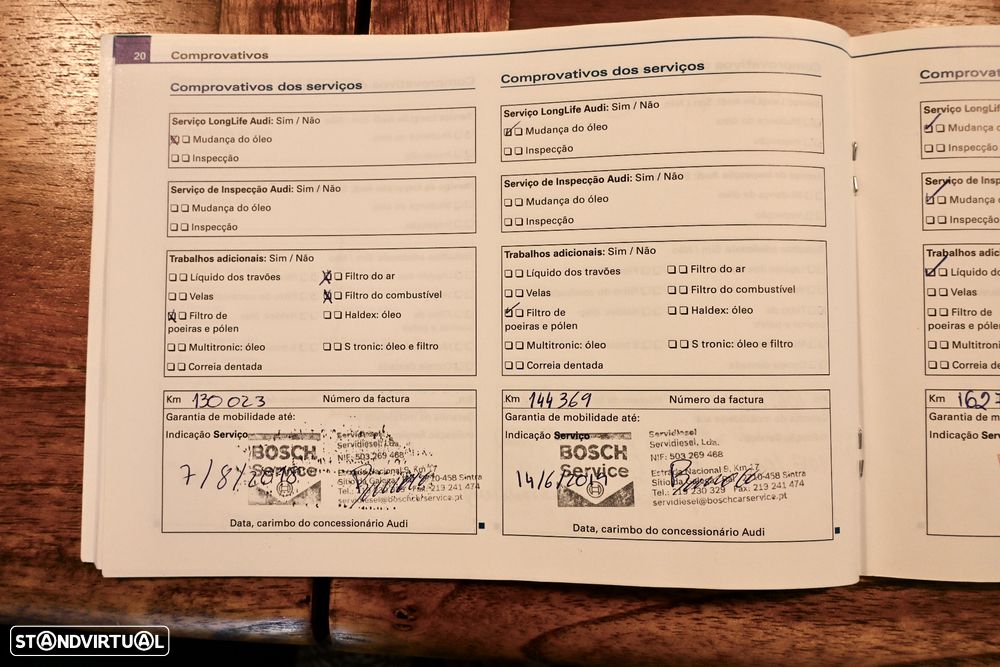 20 Comprovativos
Comprovativos dos serviços
Serviço LongLife Audi: Sim / Não
Mudança do óleo
Inspecção
Serviço de Inspecção Audi: Sim / Não
Mudança do óleo
Inspecção
Trabalhos adicionais: Sim / Não
Líquido dos travões Filtro do ar
Velas Filtro do combustível
Filtro de Haldex: óleo
poeiras e pólen
Multitronic: óleo S tronic: óleo e filtro
Correia dentada
Km 130023 Número da factura
Garantia de mobilidade até:
Indicação Serviço
BOSCH
Service
Servidiesel
Servidiesel, Lda.
NIF: 503 269 468
Estrada Nacional 9, Km
Tel.: Fax: 219 241 474
servidiesel@boschcarservice.pt
7/8/2018
Data, carimbo do concessionário Audi
Comprovativos dos serviços
Serviço LongLife Audi: Sim / Não
Mudança do óleo
Inspecção
Serviço de Inspecção Audi: Sim / Não
Mudança do óleo
Inspecção
Trabalhos adicionais: Sim / Não
Líquido dos travões Filtro do ar
Velas Filtro do combustível
Filtro de Haldex: óleo
poeiras e pólen
Multitronic: óleo S tronic: óleo e filtro
Correia dentada
Km 144369 Número da factura
Garantia de mobilidade até:
Indicação Serviço
BOSCH
Service
Servidiesel
Servidiesel, Lda.
NIF: 503 269 468
Estrada Nacional 9, Km 17
Sintra
Tel.: 219 230 329 Fax: 219 241 474
servidiesel@boschcarservice.pt
14/6/2019
Data, carimbo do concessionário Audi
Comprovat
Serviço LongL
Mudança d
Inspecção
Serviço de Insp
Mudança
Inspecção
Trabalhos adic
Líquido do
Velas
Filtro de
poeiras e pólen
Multitronic
Correia de
Km 162
Garantia de m
Indicação Serv
STANDVIRTUAL